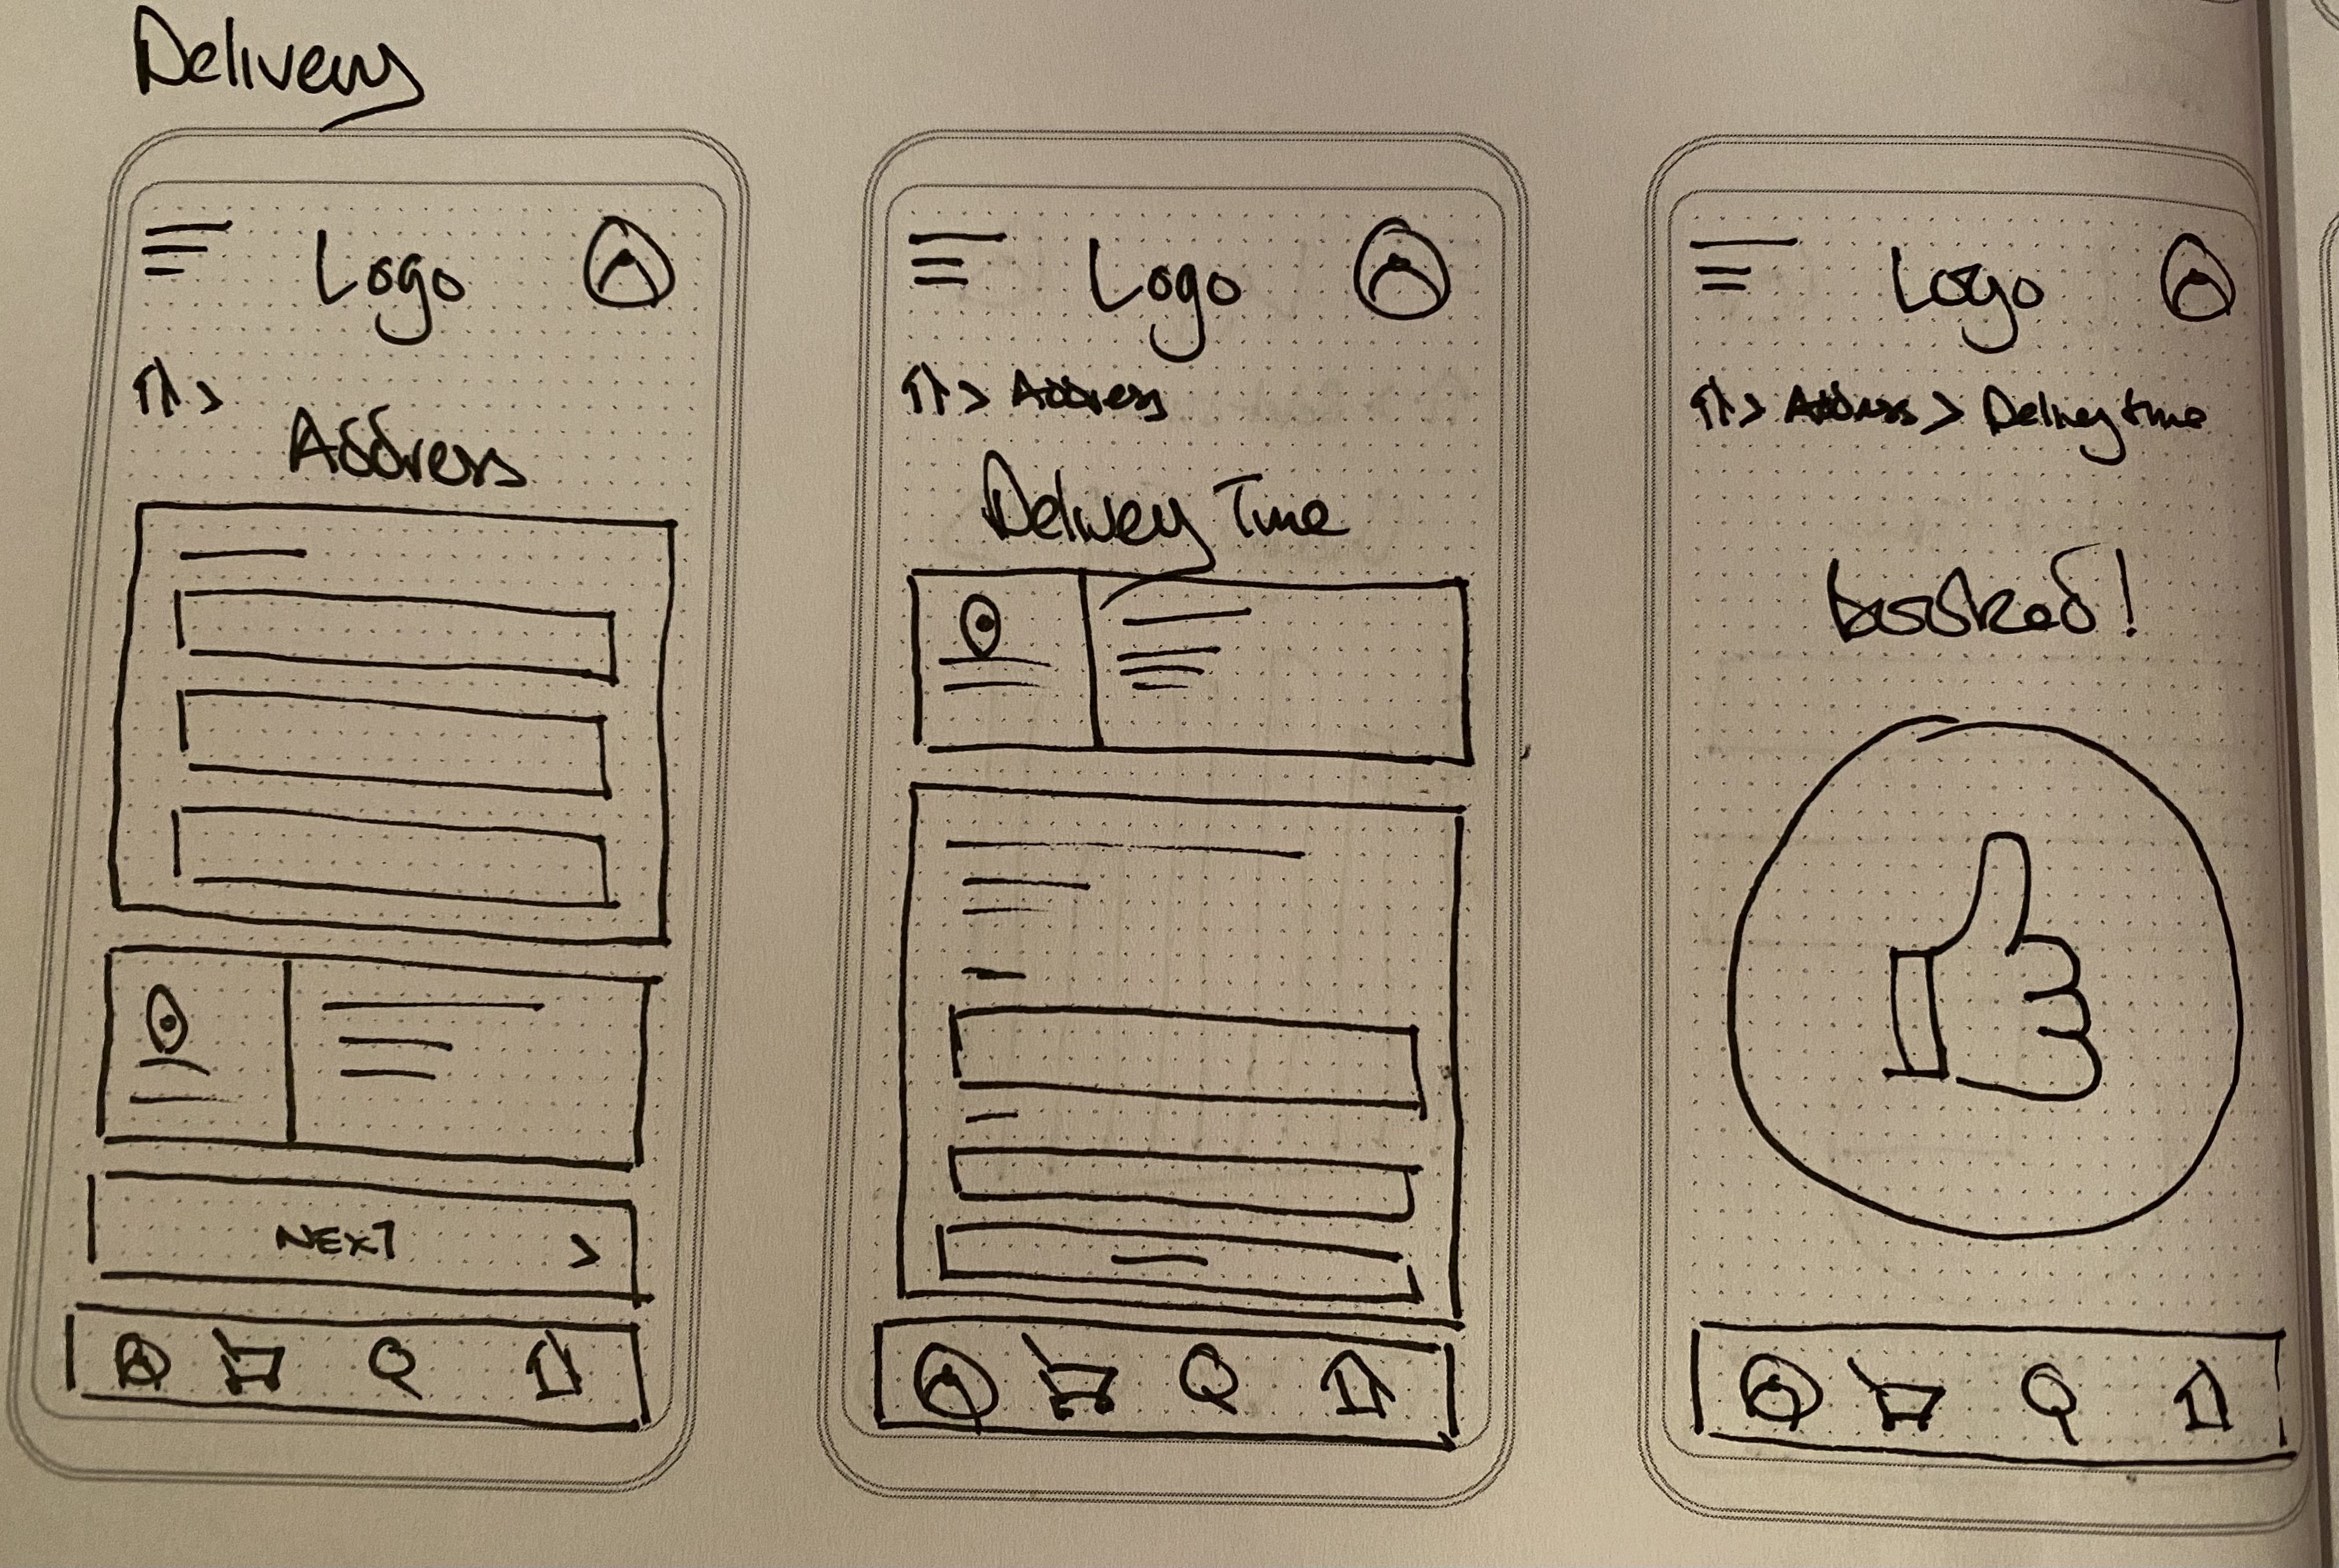 Delivery
Logo
>
Address
NEXT >
Logo
> Address
Delivery Time
Logo
> Address > Delivery time
booked!